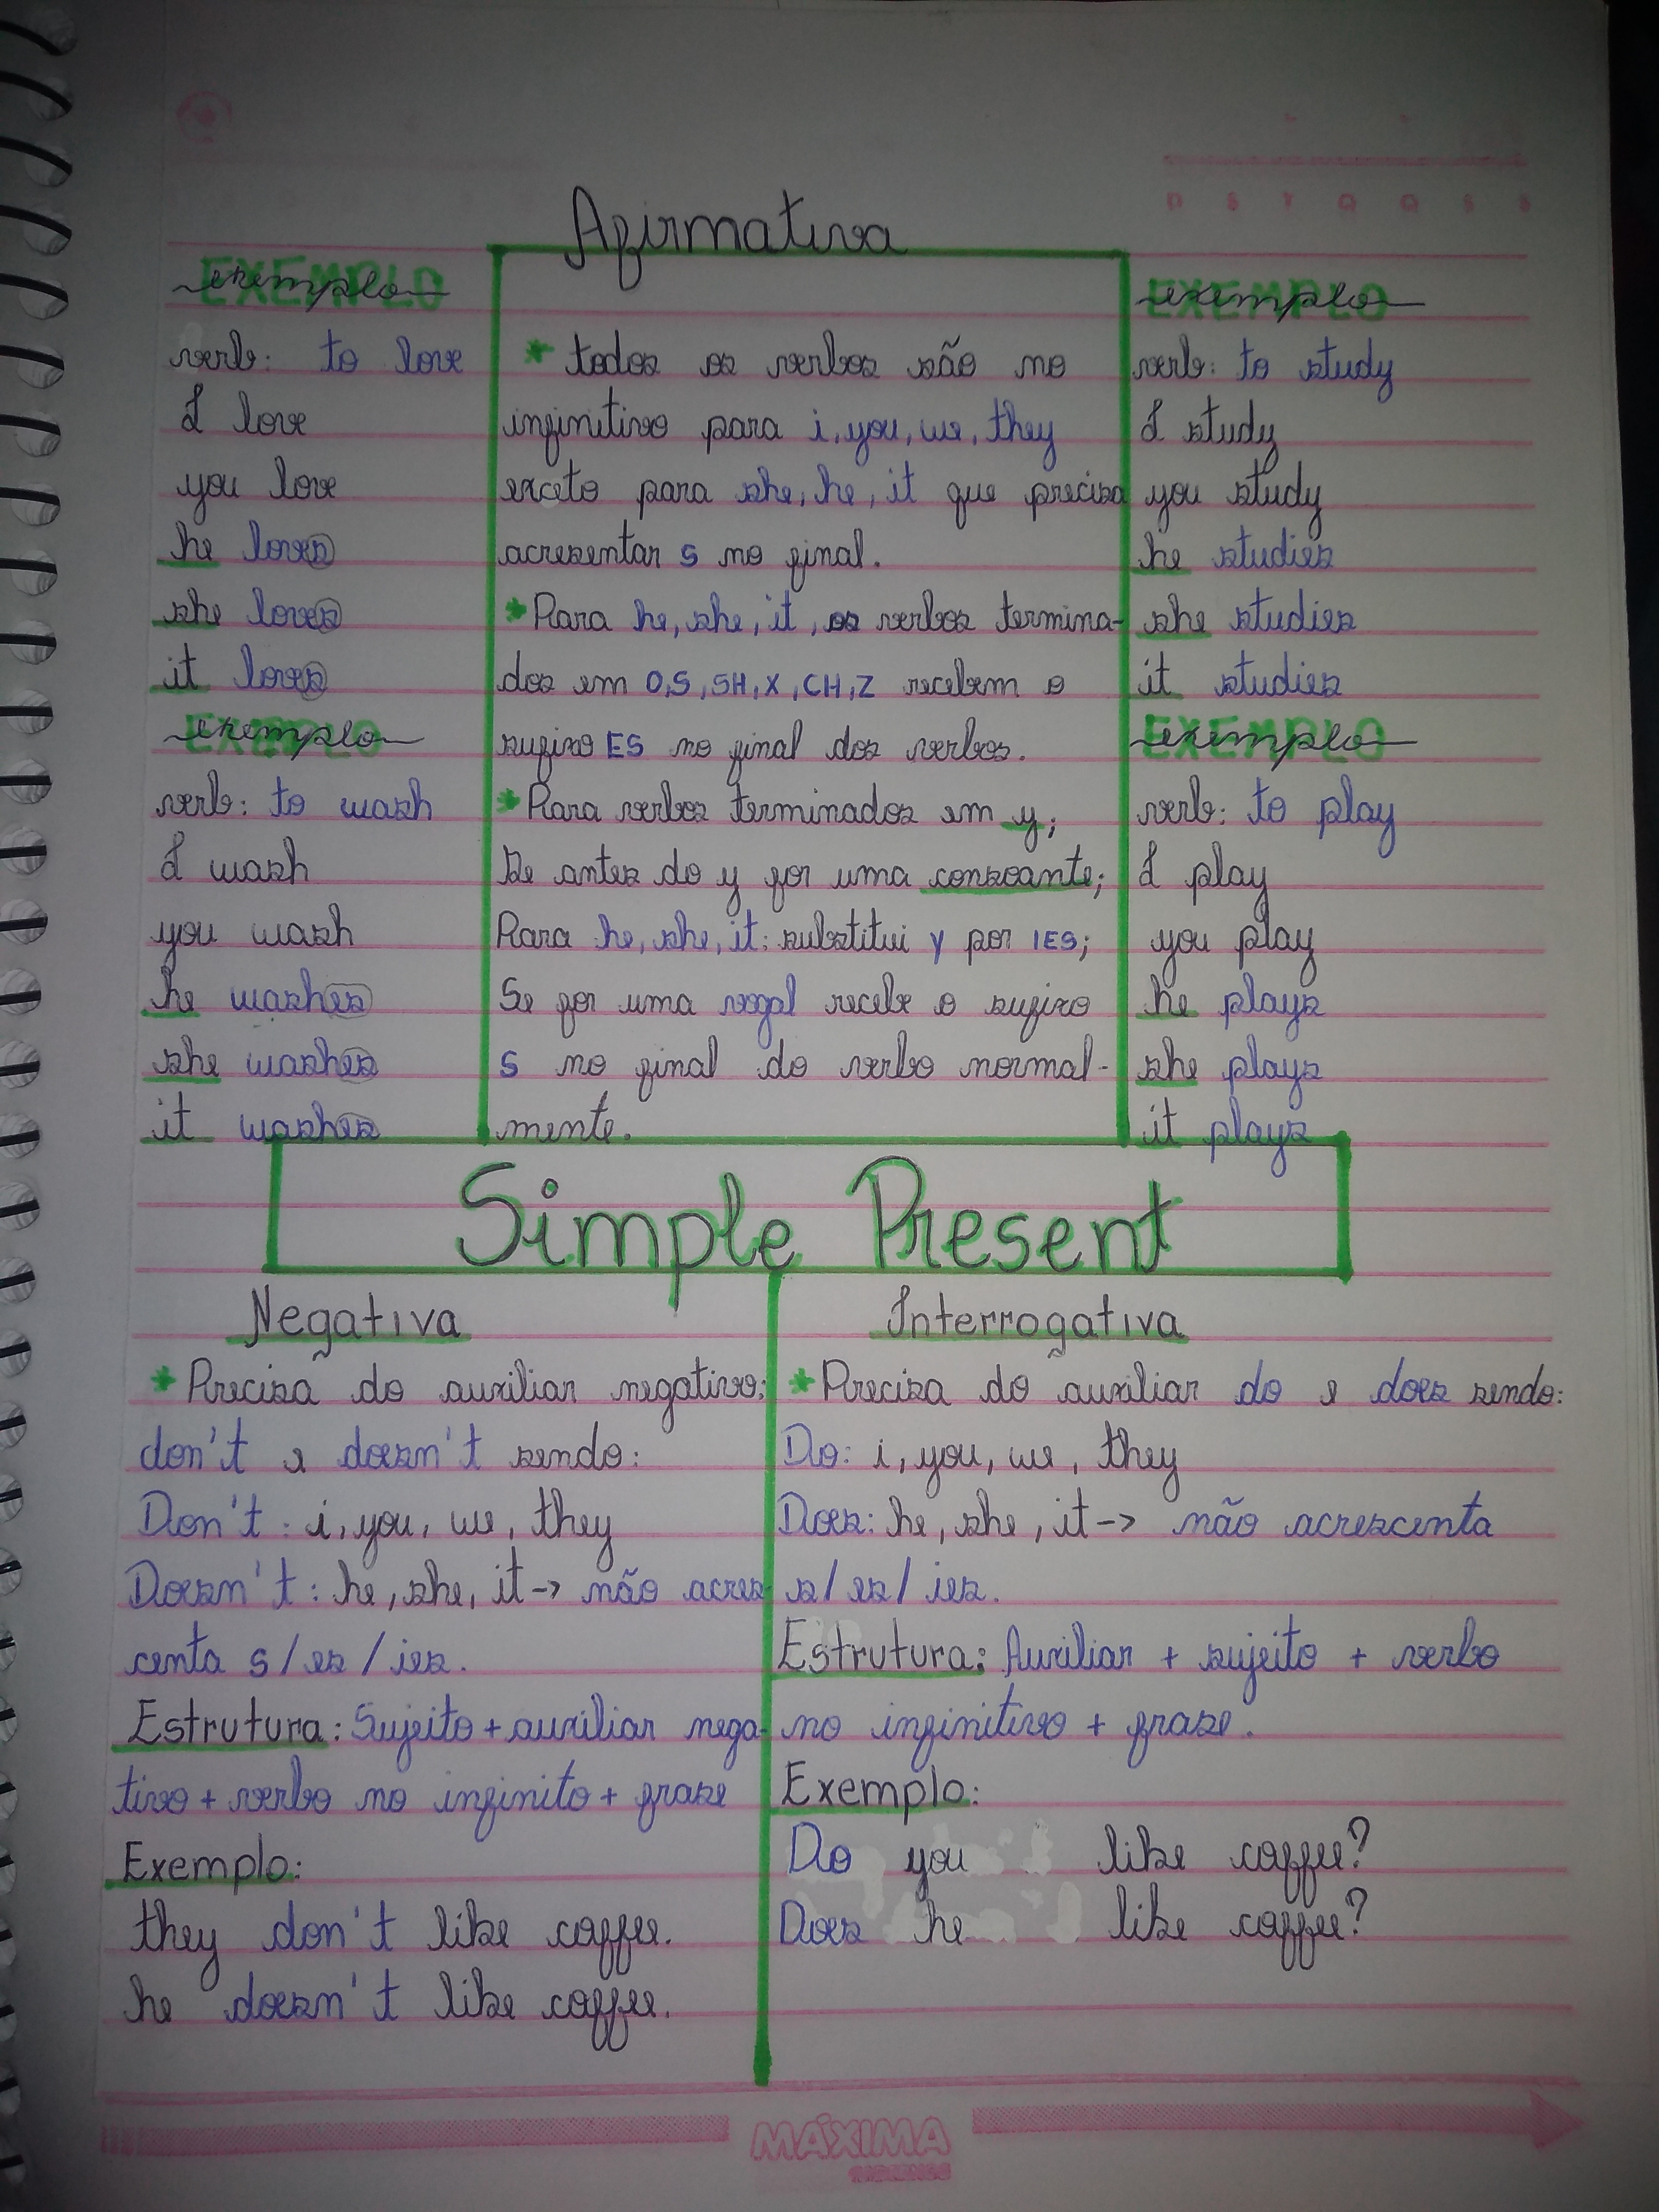 D S T Q Q S S
Afirmativa
exemplo
verb: to love
I love
you love
he loves
she loves
it loves
exemplo
verb: to wash
I wash
you wash
he washes
she washes
it washes
* todos os verbos são no
infinitivo para i, you, we, they
exceto para she, he, it que precisa
acresentar S no final.
* Para he, she, it, os verbos termina-
dos em O, S, SH, X, CH, Z recebem o
sufixo ES no final dos verbos.
* Para verbos terminados em y;
Se antes do y for uma consoante;
Para he, she, it: substitui y por IES;
Se for uma vogal recebe o sufixo
S no final do verbo normal-
mente.
exemplo
verb: to study
I study
you study
he studies
she studies
it studies
exemplo
verb: to play
I play
you play
he plays
she plays
it plays
Simple Present
Negativa
* Precisa do auxiliar negativo:
don't e doesn't sendo:
Don't: i, you, we, they
Doesn't: he, she, it -> não acres-
centa s/es/ies.
Estrutura: Sujeito + auxiliar nega-
tivo + verbo no infinito + frase
Exemplo:
they don't like coffee.
he doesn't like coffee.
Interrogativa
* Precisa do auxiliar do e does sendo:
Do: i, you, we, they
Does: he, she, it -> não acrescenta
s/es/ies.
Estrutura: Auxiliar + sujeito + verbo
no infinitivo + frase.
Exemplo:
Do you like coffee?
Does he like coffee?
MÁXIMA
CADERNOS